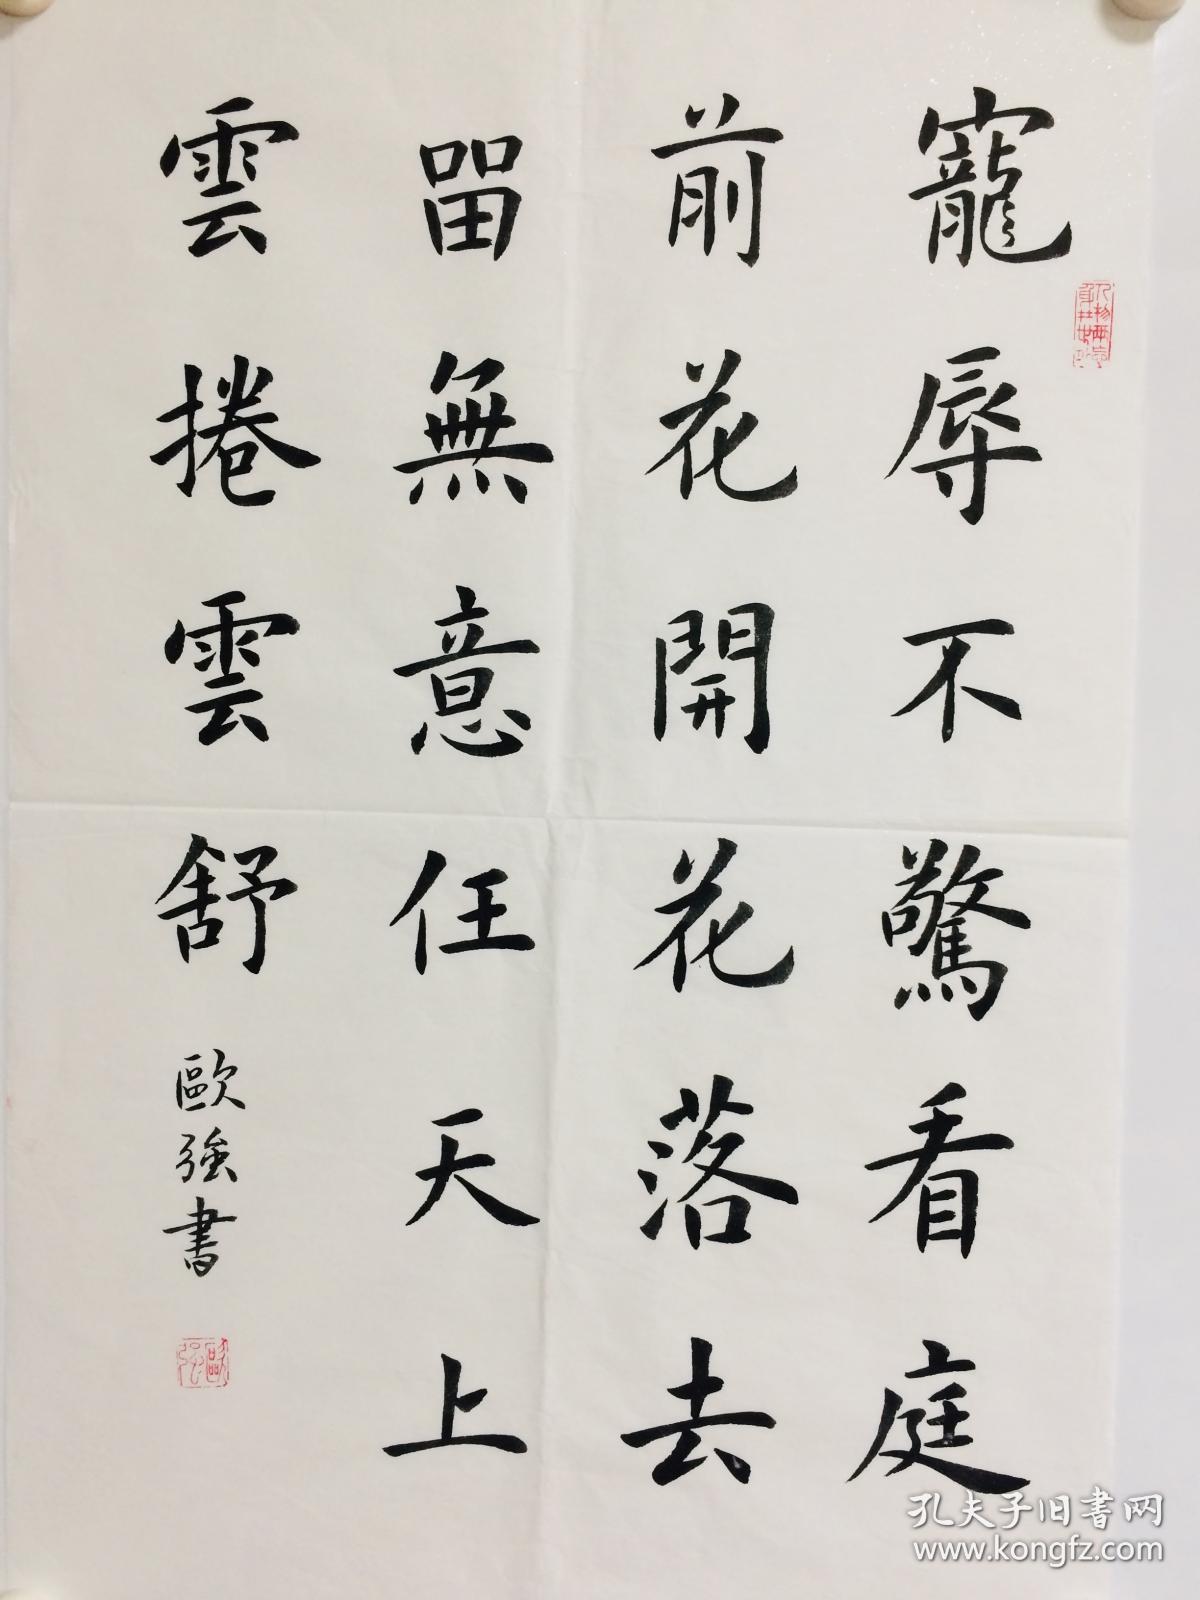 寵辱不驚看庭
前花開花落去
畱無意任天上
雲捲雲舒
歐強書
歐強
孔夫子旧书网
www.kongfz.com